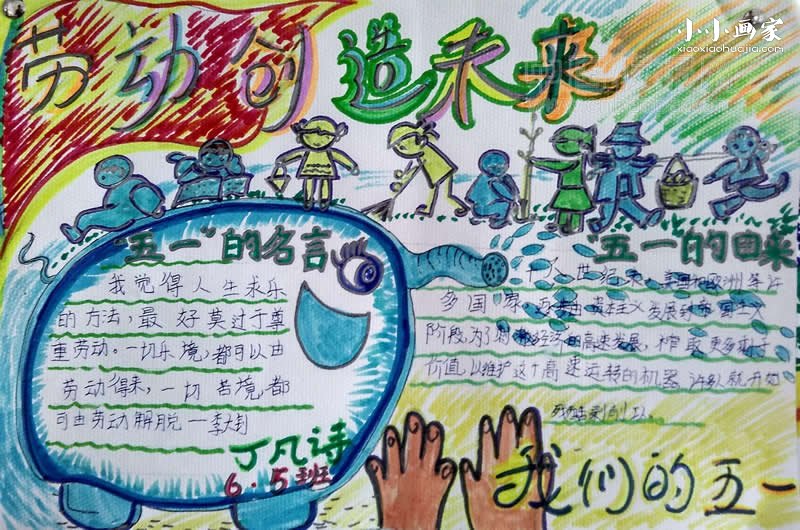 小小画家
xiaoxiaohuajia.com
劳动创造未来
"五一"的名言
我觉得人生求乐
的方法，最好莫过于尊
重劳动。一切乐境，都可以由
劳动得来，一切苦境，都
可由劳动解脱 一李大钊
丁凡诗
6.5班
"五一的由来
十九世纪末，美国和欧洲等许
多国家，
发展到帝国主义
阶段，为了刺激经济的高速发展，榨取更多
价值，以维护这个高速运转的机器
我们的五一